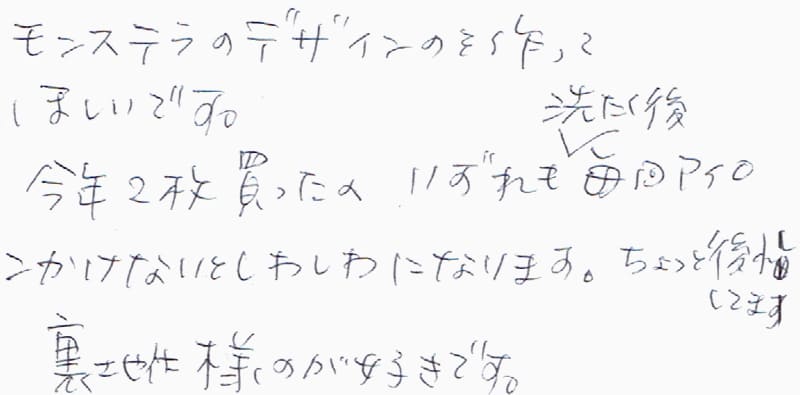 モンステラのデザインのを作って
ほしいです。
今年2枚買ったが いずれも洗たく後毎回アイロ
ンかけないとしわしわになります。ちょっと後悔
してます
裏地仕様のが好きです。